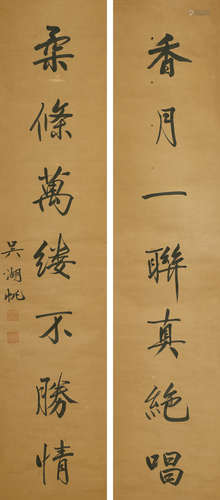 香月一聯真絕唱
柔條萬縷不勝情
吳湖帆